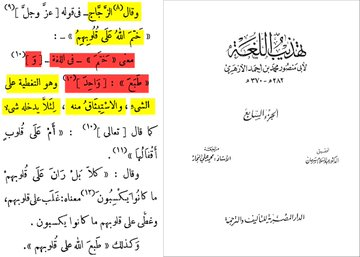 وقال (٨) الزَّجَّاج ـ فى قوله [ عزَّ وجلَّ ] (٩)
« خَتَمَ اللهُ عَلَى قُلُوبِهِمْ » :
معنى « خَتَمَ » ـ فى اللغة ـ [ وَ ]
« طَبَعَ » : [ وَاحِدٌ ] (١٠) وهو التغطية على
الشىءِ، والاسْتِيثَاقُ منه ، لِئَلَّا يدخله شىء
كما قال [ تعالى ] (١٠) : « أَمْ عَلَى قُلُوبٍ
أَقْفَالُهَا » (١١) .
وقال : « كَلَّا بَلْ رَانَ عَلَى قُلُوبِهِمْ
مَا كَانُوا يَكْسِبُونَ » (١٢) معناه : غَلَبَ على قلوبهم
وغطَّى على قلوبهم ما كانوا يكسبون .
وَكذلك « طَبَعَ الله على قلوبهم » .
تهذيب اللغة
لأبى منصور محمد بن أحمد الأزهرى
٢٨٢ ـ ٣٧٠ هـ
الجزء السابع
تحقيق
الدكتور عبد السلام سرحان
مراجعة
الأستاذ محمد على النجار
الدار المصرية للتأليف والترجمة